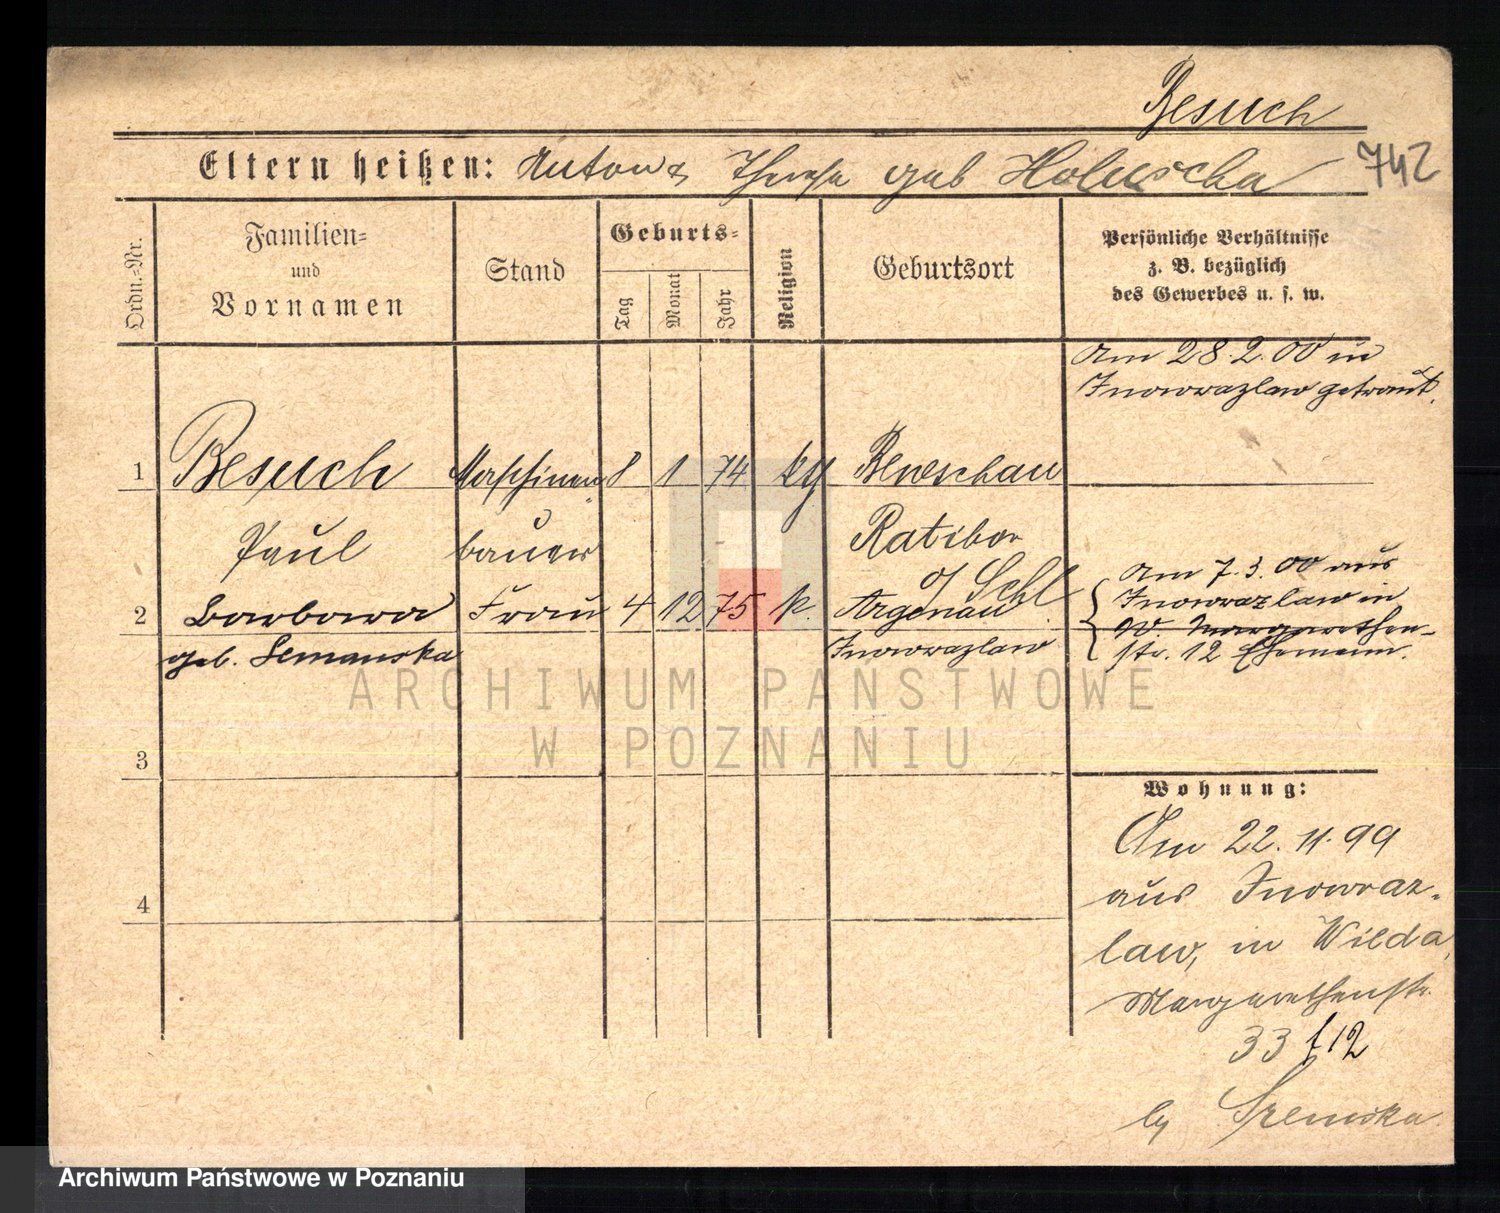 Besuch
Eltern heißen: Anton & Therese geb Holuscha
742
Ordn.-Nr.
Familien-
und
Vornamen
Stand
Geburts-
Tag
Monat
Jahr
Religion
Geburtsort
Persönliche Verhältnisse
z. B. bezüglich
des Gewerbes u. s. w.
Am 28.2.00 in
Inowrazlaw getraut.
1 Besuch Maschinen 8 1 74 kg Benschau
Paul bauer Ratibor
o/ Schl
2 Barbara Frau 4 12 75 k. Argenau
geb. Semanska Inowrazlaw
Am 7.3.00 aus
Inowrazlaw in
W. Margarethen-
str. 12 Ehemann.
3
4
Wohnung:
Am 22.11.99
aus Inowraz-
law, in Wilda,
Margarethenstr.
33 f 12
by
ARCHIWUM PAŃSTWOWE
W POZNANIU
Archiwum Państwowe w Poznaniu